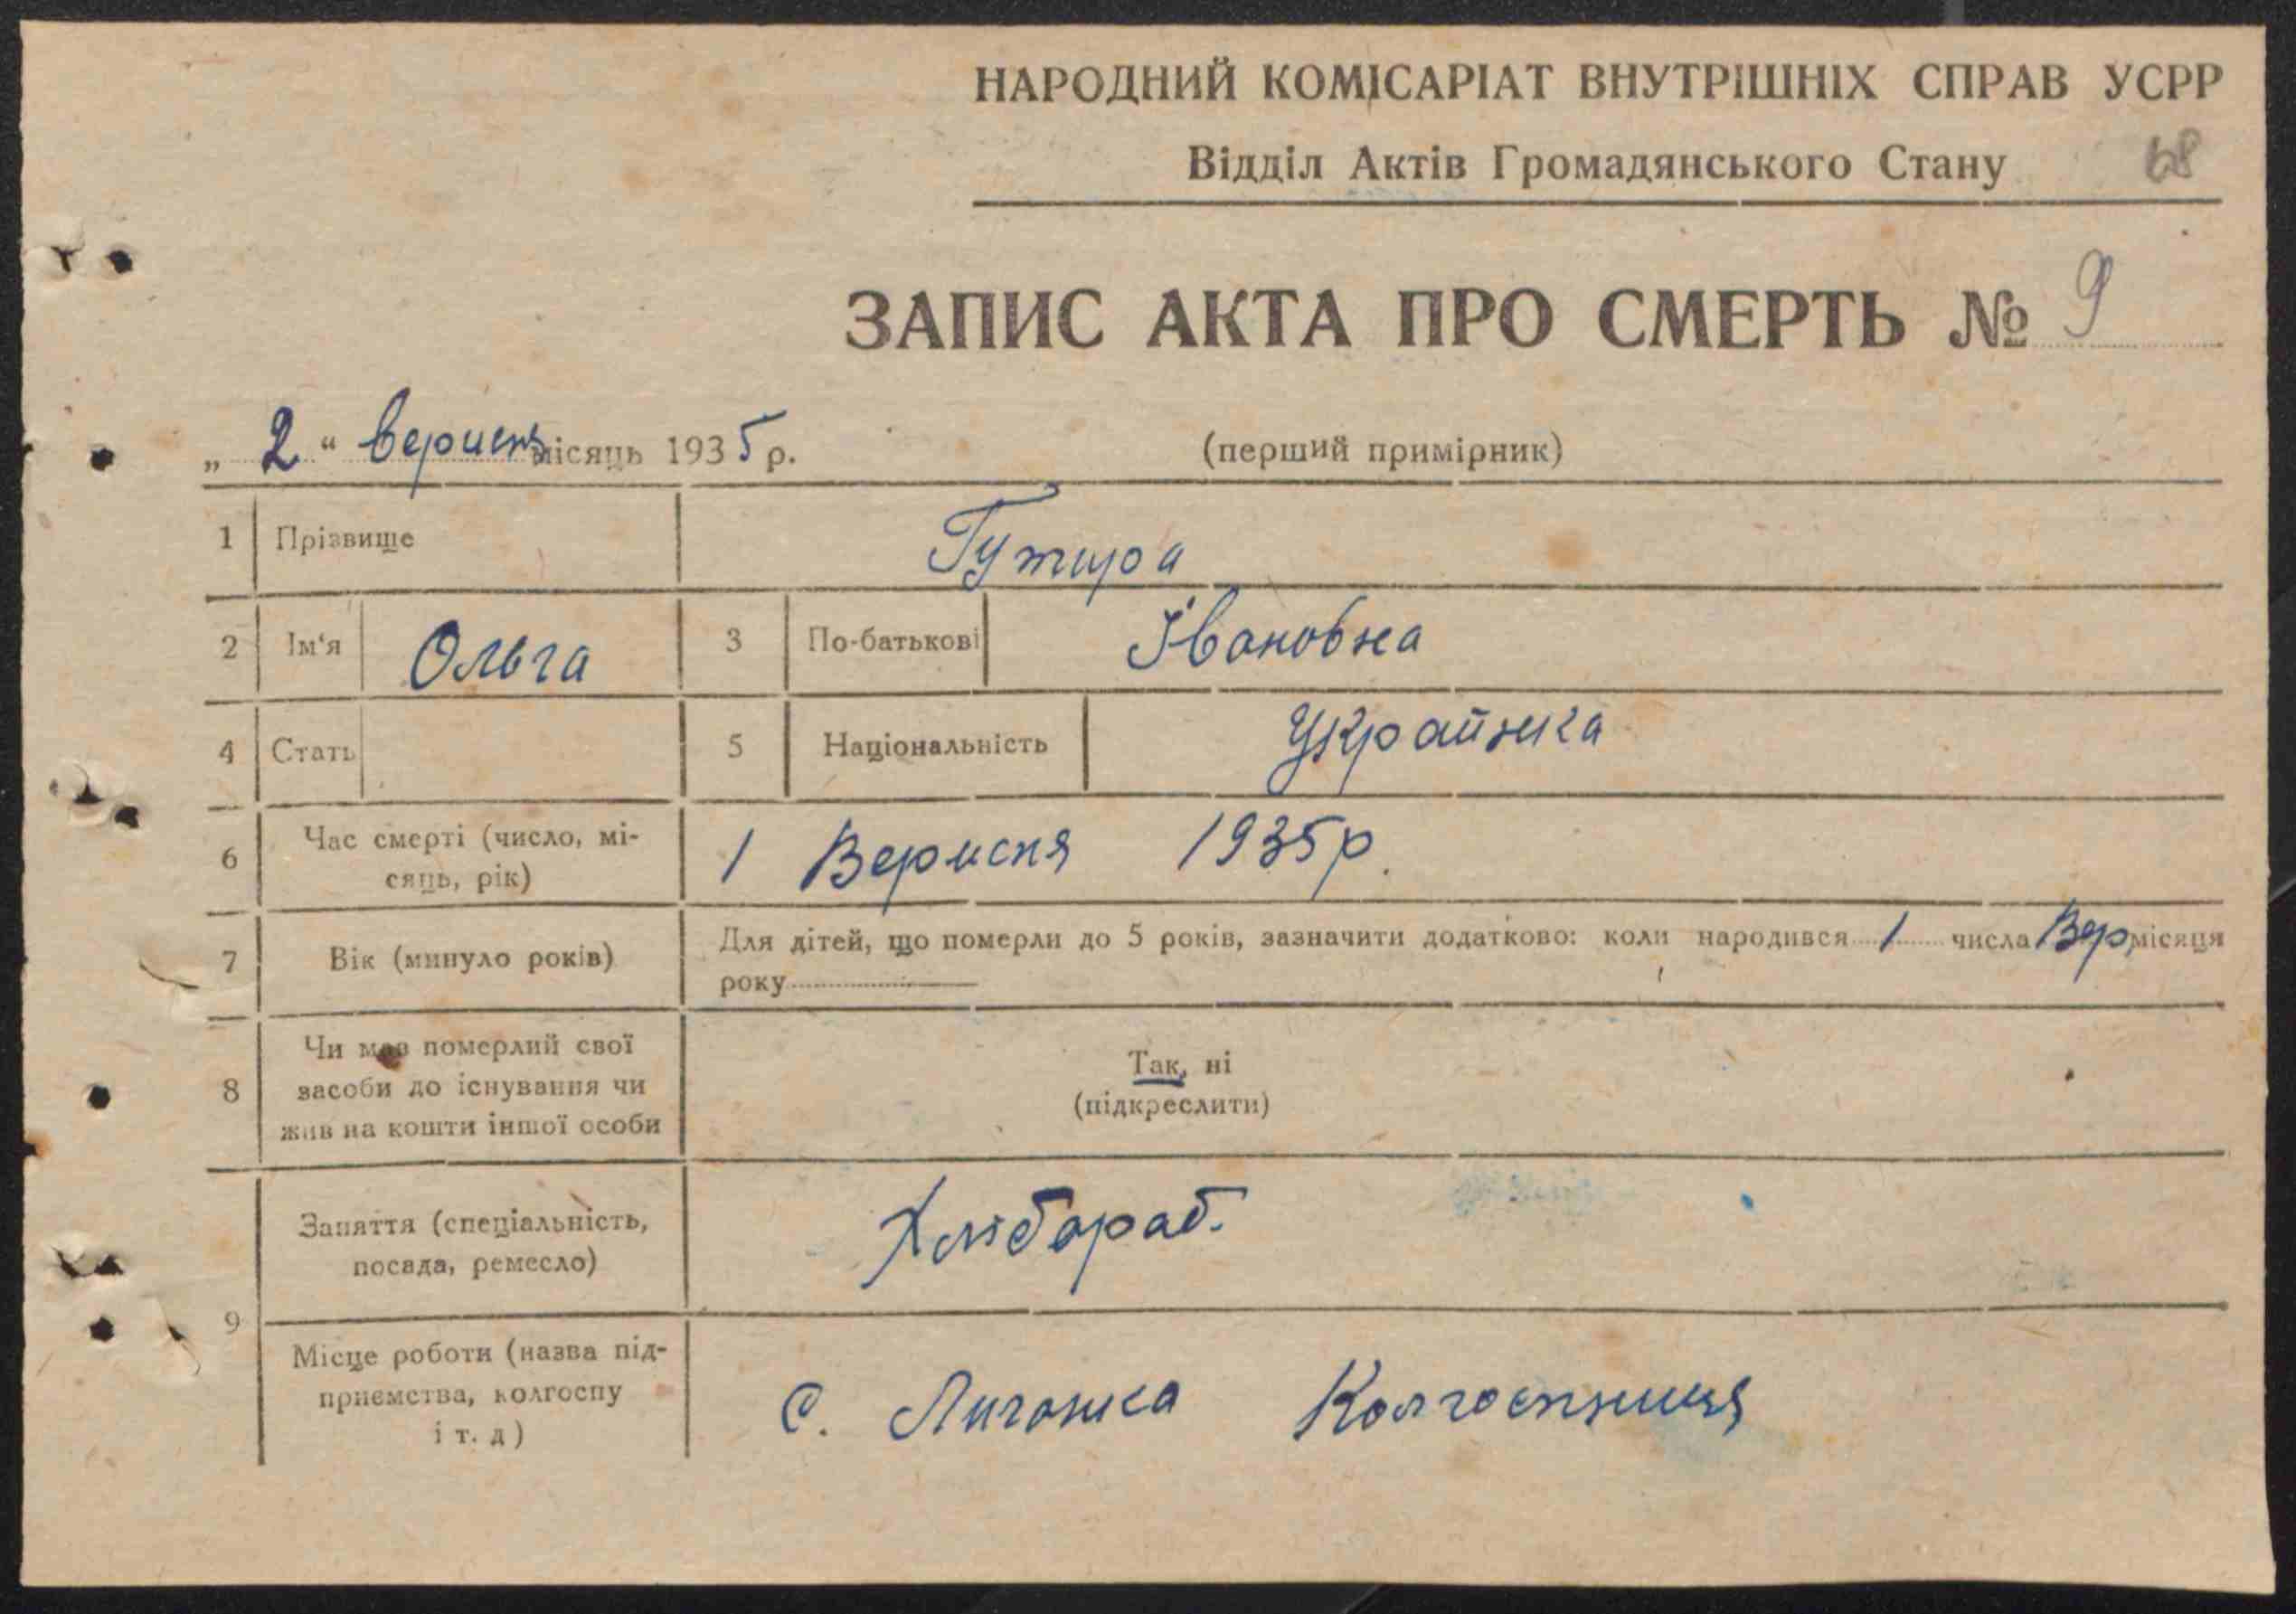 НАРОДНИЙ КОМІСАРІАТ ВНУТРІШНІХ СПРАВ УСРР
Відділ Актів Громадянського Стану 68
ЗАПИС АКТА ПРО СМЕРТЬ № 9
„ 2 “ вересня місяць 1935 р. (перший примірник)
1 Прізвище Гутира
2 Ім‘я Ольга 3 По-батькові Івановна
4 Стать 5 Національність Українка
6 Час смерті (число, мі-
сяць, рік) 1 Вересня 1935 р.
7 Вік (минуло років) Для дітей, що померли до 5 років, зазначити додатково: коли народився 1 числа Вер місяця
року
8 Чи мав померлий свої
засоби до існування чи
жив на кошти іншої особи
Так, ні
(підкреслити)
9 Заняття (спеціальність,
посада, ремесло) Хлібораб.
Місце роботи (назва під-
приємства, колгоспу
і т. д) С. Лиговка Колгоспниця